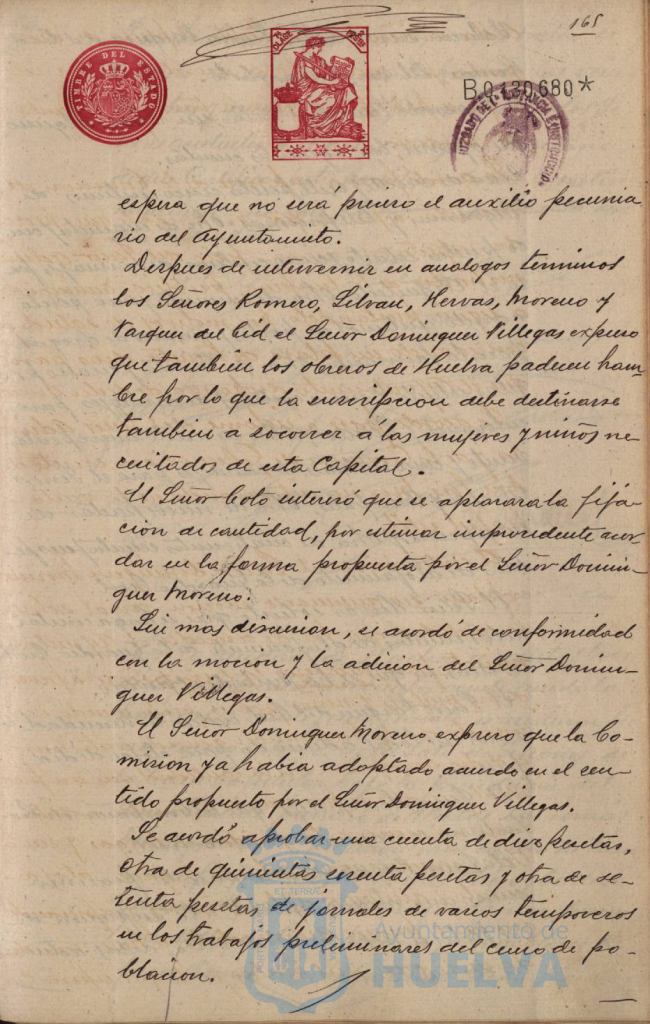 165
TIMBRE DEL ESTADO
CLASE
B.0.130.680*
JUZGADO DE 1ª INSTANCIA E INSTRUCCION
espera que no será preciso el auxilio pecunia
rio del Ayuntamieto.
Despues de intervernir en analogos terminos
los Señores Romero, Silvan, Hervas, Moreno y
Vazquez del Cid el Señor Dominguez Villegas expuso
que tambien los obreros de Huelva padecen ham-
bre por lo que la suscripcion debe destinarse
tambien á socorrer á las mujeres y niños ne
cesitados de esta Capital.
El Señor Coto interesó que se aplazara la fija-
cion de cantidad, por estimar improcedente acor-
dar en la forma propuesta por el Señor Domin-
guez Moreno.
Sin mas discusion, se acordó de conformidad
con la mocion y la adicion del Señor Domin-
guez Villegas.
El Señor Dominguez Moreno expreso que la Co-
mision ya habia adoptado acuerdo en el cen-
tido propuesto por el Señor Dominguez Villegas.
Se acordó aprobar una cuenta de diez pesetas,
otra de quinientas sesenta pesetas y otra de se-
tenta pesetas de jornales de varios temporeros
en los trabajos preliminares del censo de po-
blacion.
Ayuntamiento de
HUELVA